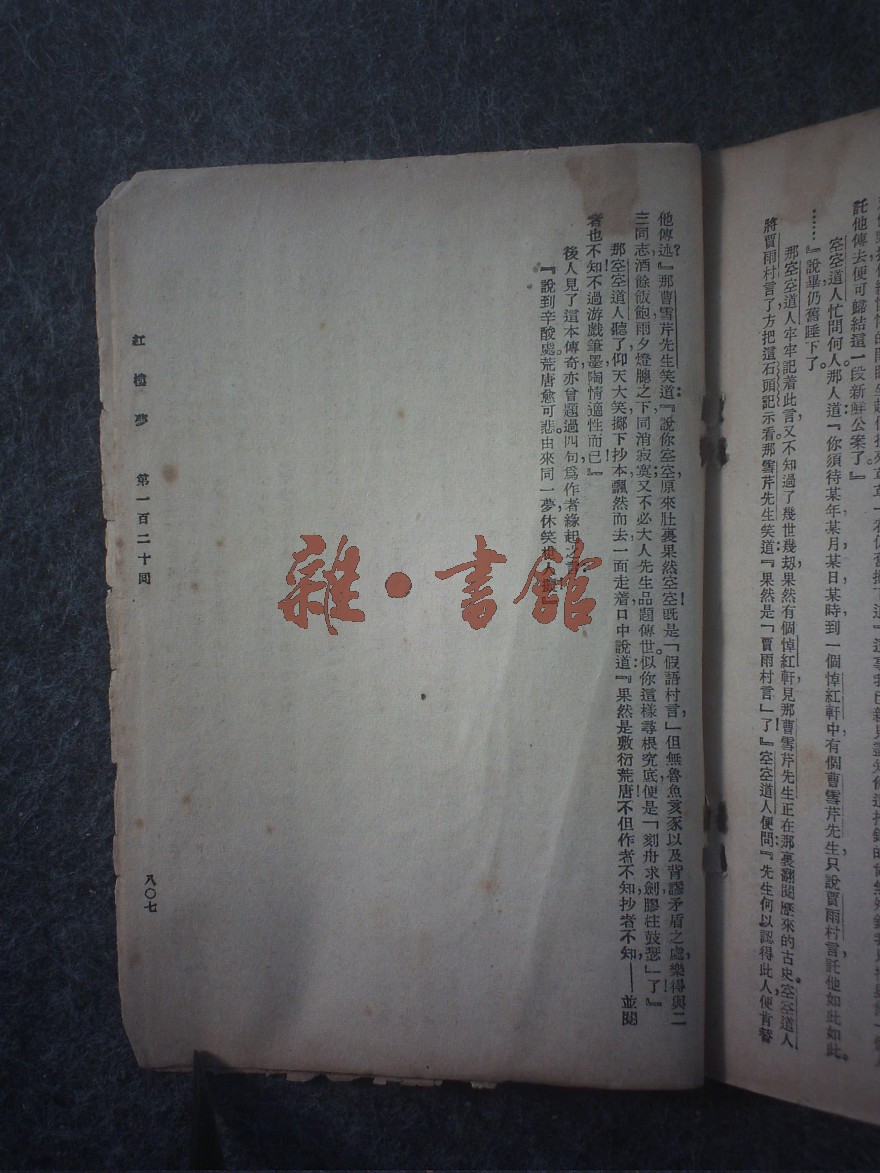 託他傳去便可歸結這一段新鮮公案了』
空空道人忙問何人那人道『你須待某年某月某日某時到一個悼紅軒中有個曹雪芹先生只說賈雨村言託他如此如此。
……』說畢仍舊睡下了。
那空空道人牢牢記着此言又不知過了幾世幾刼果然有個悼紅軒見那曹雪芹先生正在那裏翻閱歷來的古史空空道人
將賈雨村言了方把這石頭記示看那雪芹先生笑道『果然是「賈雨村言」了』空空道人便問『先生何以認得此人便肯替
他傳述?』那曹雪芹先生笑道:『說你空空原來肚裏果然空空!旣是「假語村言」但無魯魚亥豕以及背謬矛盾之處,樂得與二
三同志,酒餘飯飽,雨夕燈牕之下同消寂寞;又不必大人先生品題傳世。似你這樣尋根究底便是「刻舟求劍膠柱鼓瑟」了!』
那空空道人聽了,仰天大笑,擲下抄本飄然而去一面走着,口中說道:『果然是敷衍荒唐!不但作者不知,抄者不知,——並閱
者也不知!不過游戲筆墨,陶情適性而已!』
後人見了這本傳奇,亦曾題過四句,爲作者緣起之言
『說到辛酸處,荒唐愈可悲。由來同一夢,休笑世人癡
紅樓夢 第一百二十回
八〇七
雜·書館